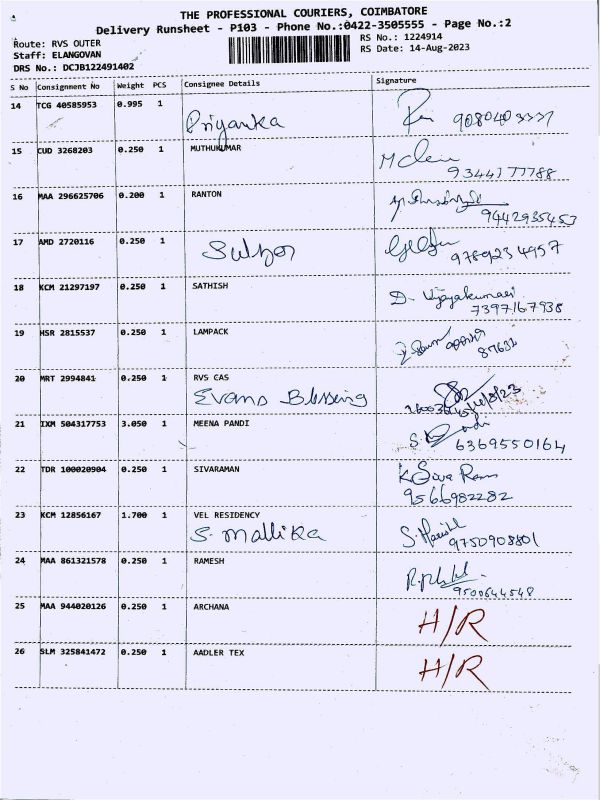 THE PROFESSIONAL COURIERS, COIMBATORE
Delivery Runsheet - P103 - Phone No.:0422-3505555 - Page No.:2
Route: RVS OUTER
Staff: ELANGOVAN
DRS No.: DCJB122491402
RS No.: 1224914
RS Date: 14-Aug-2023
S No Consignment No Weight PCS Consignee Details Signature
14 TCG 40585953 0.995 1
Priyanka
15 CUD 3268203 0.250 1 MUTHUKUMAR
9344177788
16 MAA 296625706 0.200 1 RANTON
9442935453
17 AMD 2720116 0.250 1
9789234957
18 KCM 21297197 0.250 1 SATHISH
D. Vijayakumar
7397167938
19 HSR 2815537 0.250 1 LAMPACK
20 MRT 2994841 0.250 1 RVS CAS
Evans Blessing
21 IXM 504317753 3.050 1 MEENA PANDI
6369550164
22 TDR 100020904 0.250 1 SIVARAMAN
K Siva Ram
9566982282
23 KCM 12856167 1.700 1 VEL RESIDENCY
S. Mallika
9750908801
24 MAA 861321578 0.250 1 RAMESH
9500644548
25 MAA 944020126 0.250 1 ARCHANA H/R
26 SLM 325841472 0.250 1 AADLER TEX H/R